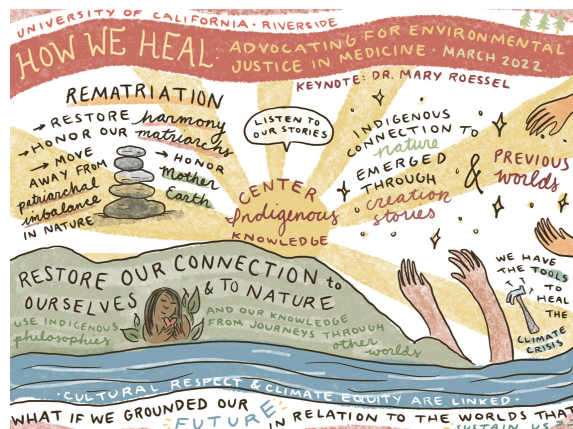 UNIVERSITY OF CALIFORNIA · RIVERSIDE
HOW WE HEAL · ADVOCATING FOR ENVIRONMENTAL
JUSTICE IN MEDICINE · MARCH 2022
KEYNOTE: DR. MARY ROESSEL
REMATRIATION
→ RESTORE harmony
→ HONOR OUR matriarchs
→ MOVE
AWAY FROM
patriarchal
imbalance
IN NATURE
→ HONOR
Mother
Earth
LISTEN TO
OUR STORIES
CENTER
Indigenous
KNOWLEDGE
INDIGENOUS
CONNECTION TO
nature
EMERGED
THROUGH
creation
stories
&
PREVIOUS
worlds
WE HAVE
THE TOOLS
TO
HEAL
THE
CLIMATE
CRISIS
RESTORE OUR CONNECTION to
OURSELVES & TO NATURE
USE INDIGENOUS
philosophies
AND OUR KNOWLEDGE
FROM JOURNEYS THROUGH
other
worlds
· CULTURAL RESPECT & CLIMATE EQUITY ARE LINKED ·
WHAT IF WE GROUNDED OUR
FUTURE
IN RELATION TO THE WORLDS THAT
SUSTAIN US